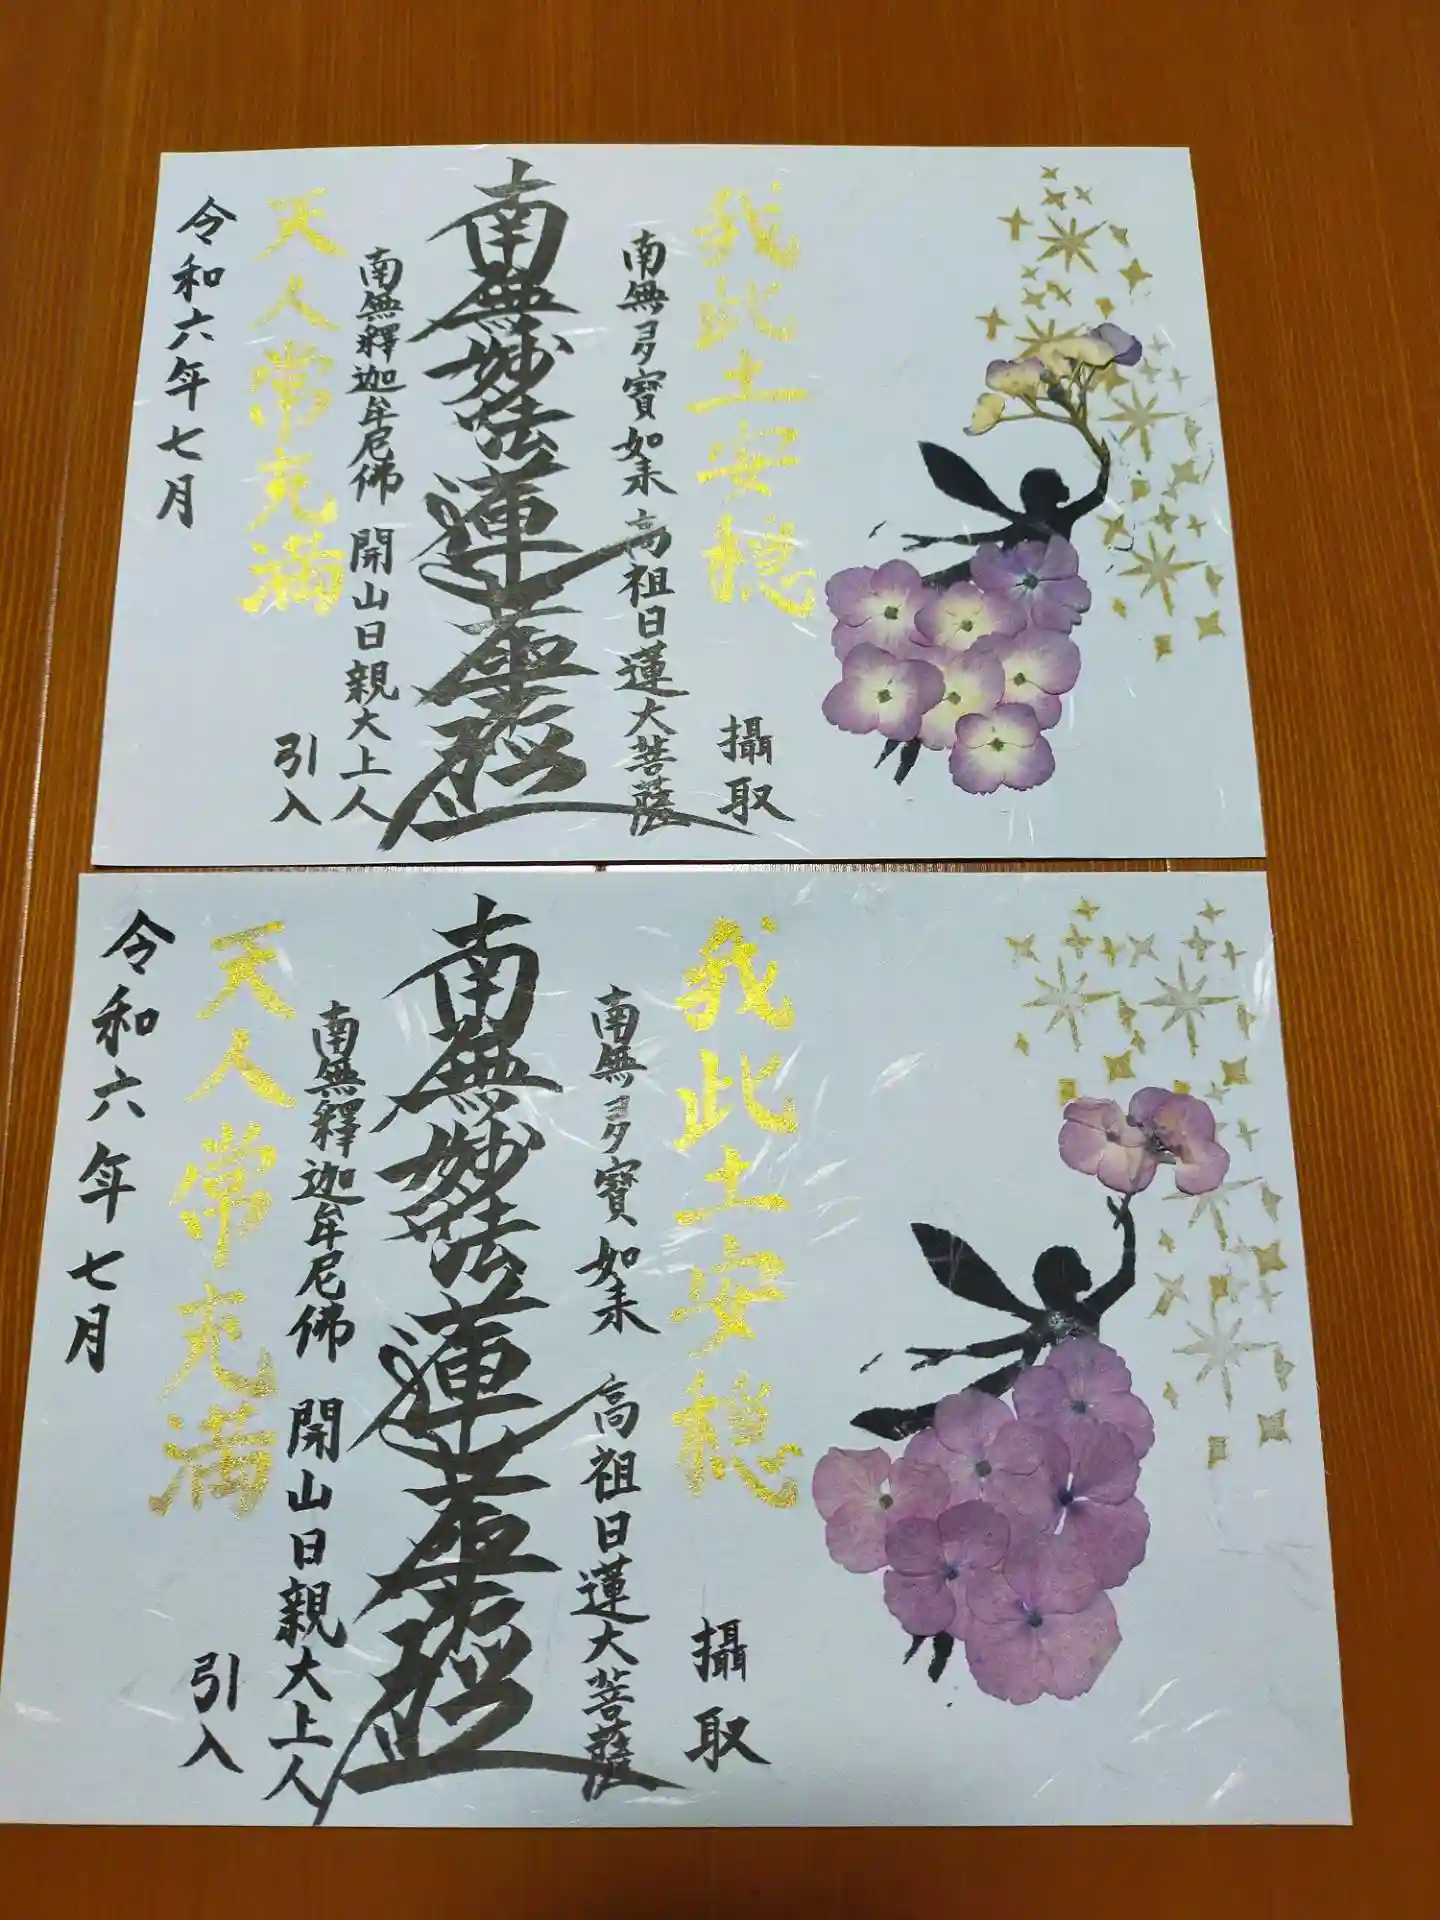 我此土安穏
攝取
南無多寶如来 高祖日蓮大菩薩
南無妙法蓮華経
南無釋迦牟尼佛 開山日親大上人
天人常充満
引入
令和六年七月
我此土安穏
攝取
南無多寶如来 高祖日蓮大菩薩
南無妙法蓮華経
南無釋迦牟尼佛 開山日親大上人
天人常充満
引入
令和六年七月